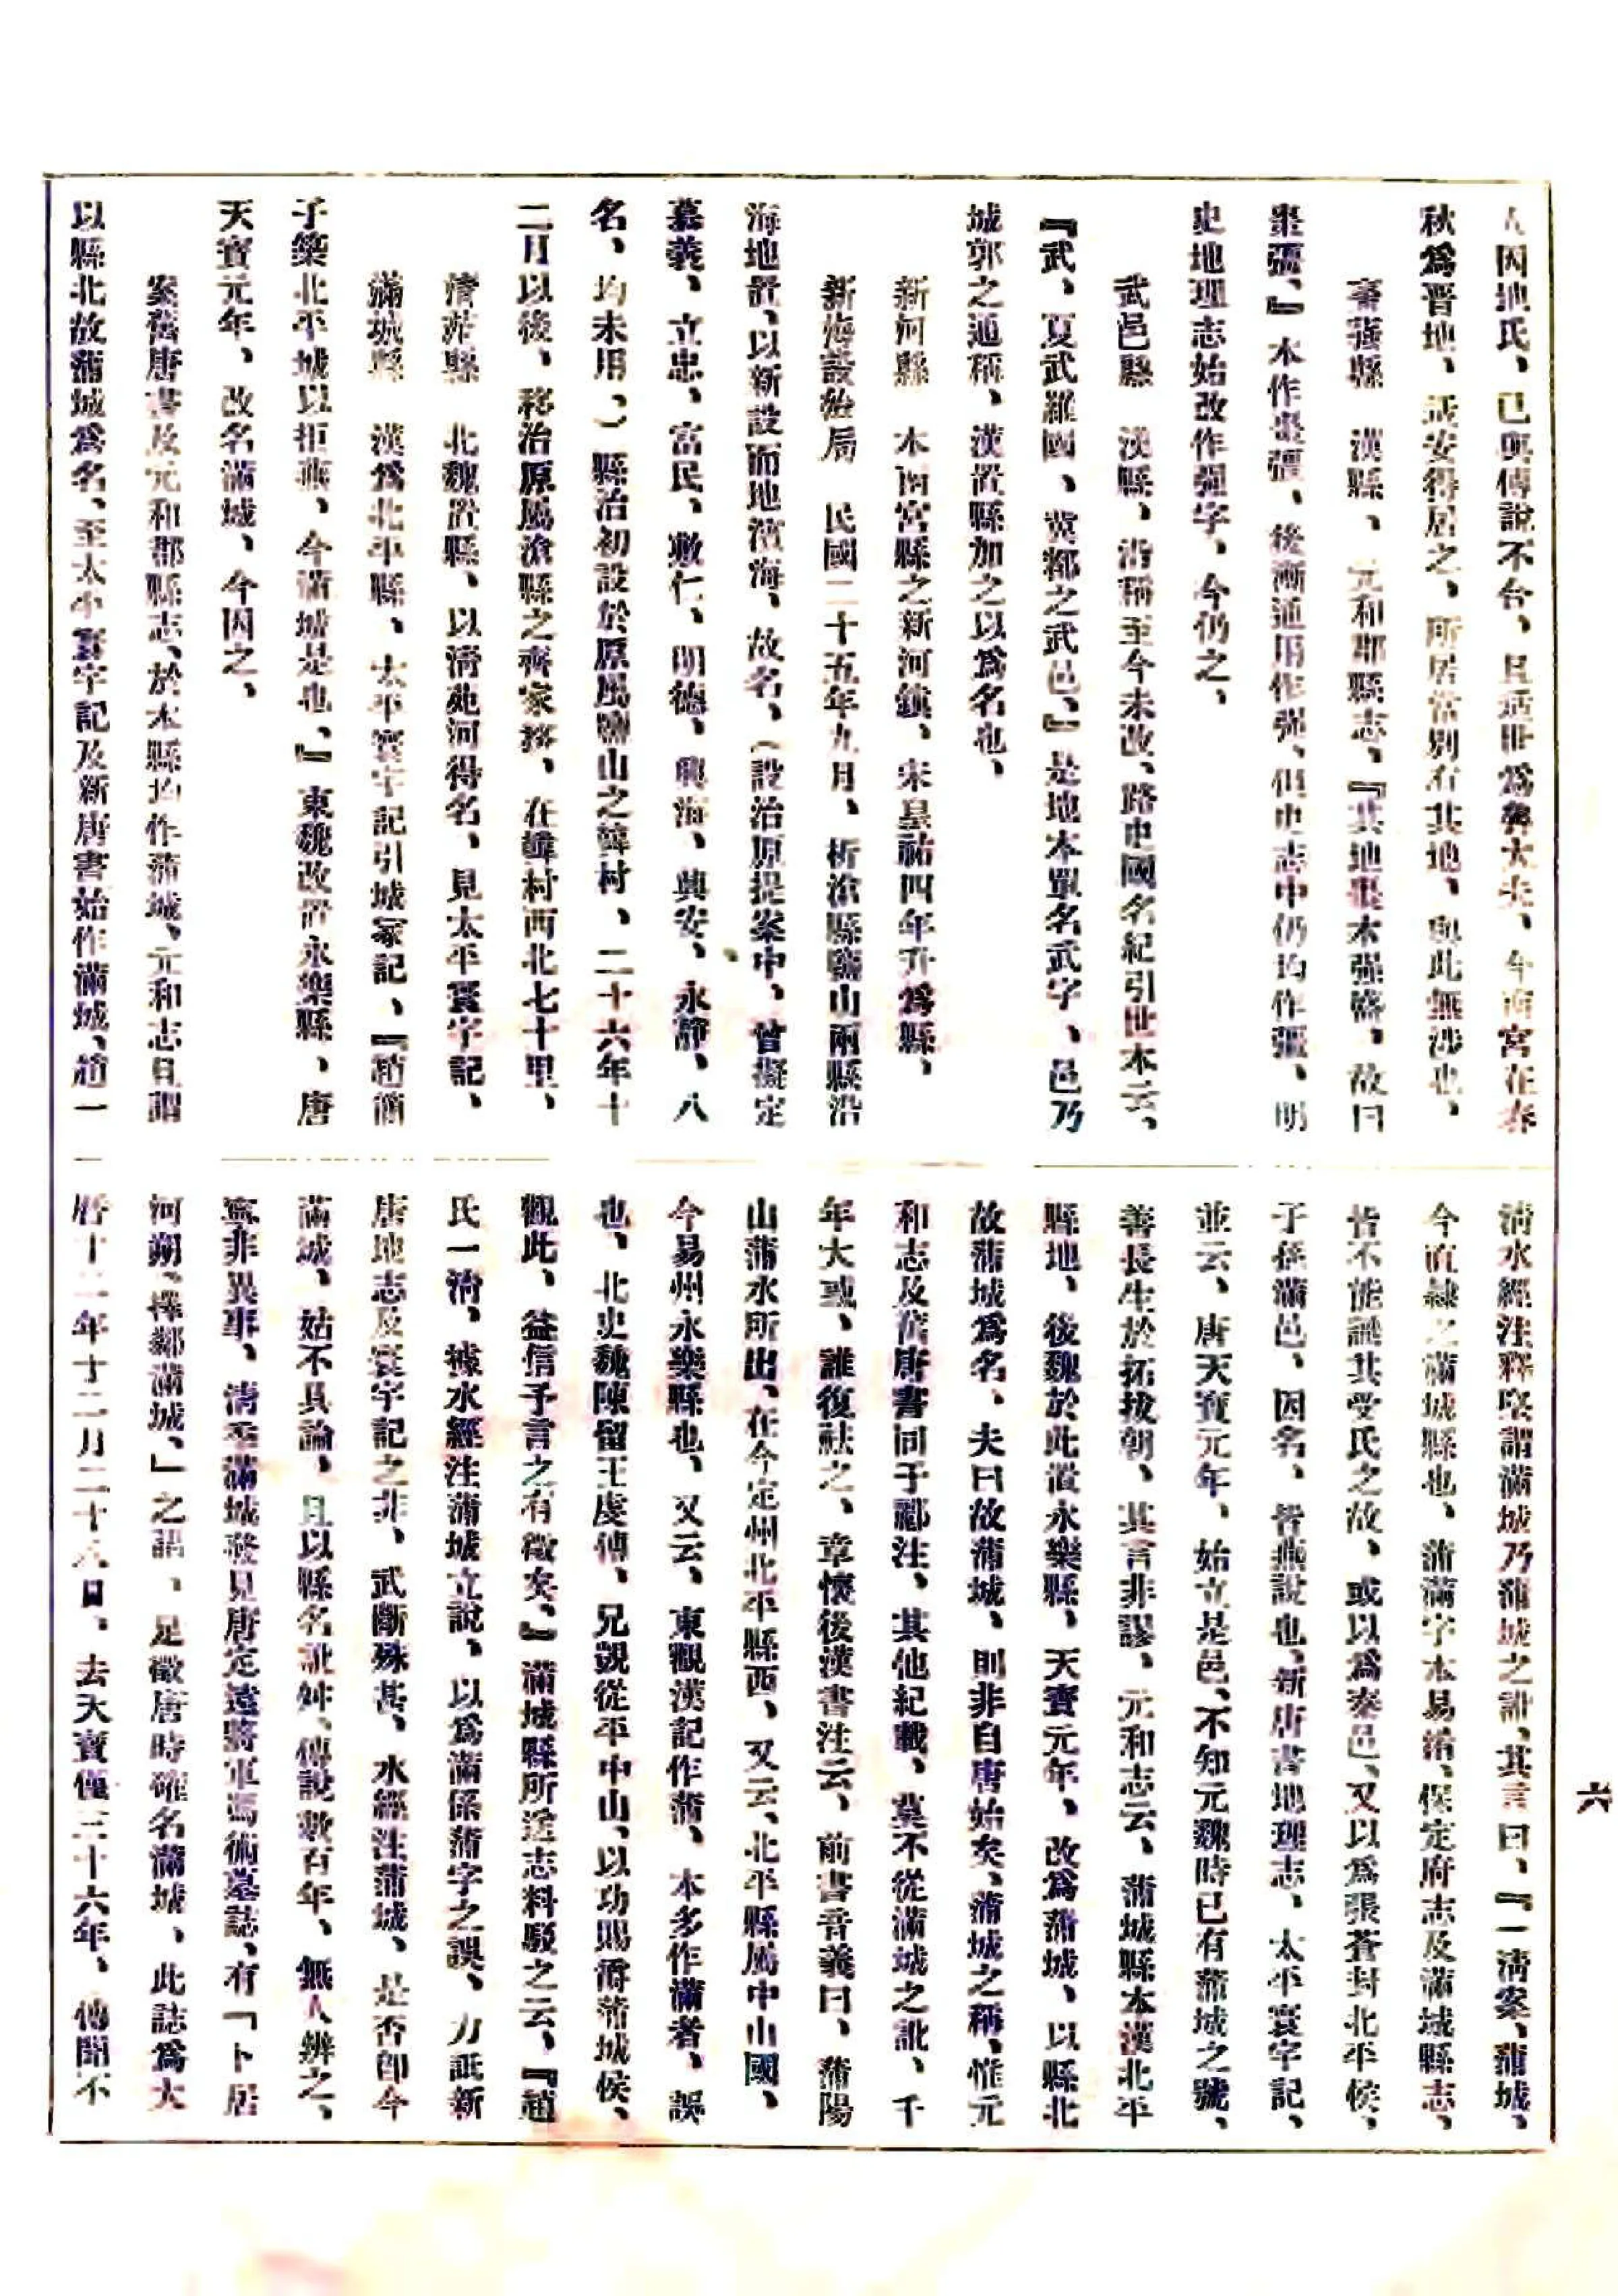 人因地氏、已與傅說不合、且适世爲魯大夫、今南宮在春
秋爲晋地、适安得居之、所居當別有其地、與此無涉也、
棗强縣　漢縣、元和郡縣志、『其地棗木强盛、故曰
棗彊、』本作棗彊、後漸通用作强、但史志中仍均作彊、明
史地理志始改作强字、今仍之、
武邑縣　漢縣、沿稱至今未改、路史國名紀引世本云、
『武、夏武羅國、冀都之武邑、』是地本單名武字、邑乃
城郭之通稱、漢置縣加之以爲名也、
新河縣　本南宮縣之新河鎮、宋皇祐四年升爲縣、
新海設治局　民國二十五年九月、析滄縣鹽山兩縣沿
海地置、以新設而地濱海、故名、（設治原提案中、曾擬定
慕義、立忠、富民、敷仁、明德、興海、興安、永靜、八
名、均未用、）縣治初設於原屬鹽山之韓村、二十六年十
二月以後、移治原屬滄縣之齊家務、在韓村西北七十里、
清苑縣　北魏置縣、以清苑河得名、見太平寰宇記、
滿城縣　漢爲北平縣、太平寰宇記引城冢記、『趙簡
子築北平城以拒燕、今滿城是也、』東魏改置永樂縣、唐
天寶元年、改名滿城、今因之、
案舊唐書及元和郡縣志、於本縣均作蒲城、元和志且謂
以縣北故蒲城爲名、至太平寰宇記及新唐書始作滿城、趙一
清水經注釋堅謂滿城乃蒲城之訛、其言曰、『一清案、蒲城、
今直隸之滿城縣也、蒲滿字本易淆、保定府志及滿城縣志、
皆不能識其受氏之故、或以爲秦邑、又以爲張蒼封北平侯、
子孫滿邑、因名、皆燕說也、新唐書地理志、太平寰宇記、
並云、唐天寶元年、始立是邑、不知元魏時已有蒲城之號、
善長生於拓拔朝、其言非謬、元和志云、蒲城縣本漢北平
縣地、後魏於此置永樂縣、天寶元年、改爲蒲城、以縣北
故蒲城爲名、夫曰故蒲城、則非自唐始矣、蒲城之稱、惟元
和志及舊唐書同于酈注、其他紀載、莫不從滿城之訛、千
年大惑、誰復祛之、章懷後漢書注云、前書音義曰、蒲陽
山蒲水所出、在今定州北平縣西、又云、北平縣屬中山國、
今易州永樂縣也、又云、東觀漢記作蒲、本多作滿者、誤
也、北史魏陳留王虔傳、兄顗從平中山、以功賜爵蒲城侯、
觀此、益信予言之有徵矣、』滿城縣所送志料駁之云、『趙
氏一清、據水經注蒲城立說、以爲滿係蒲字之誤、力詆新
唐地志及寰宇記之非、武斷殊甚、水經注蒲城、是否卽今
滿城、姑不具論、且以縣名訛舛、傳說數百年、無人辨之、
寧非異事、清季滿城發見唐定遠將軍馮術墓誌、有「卜居
河朔、擇鄰滿城、」之語、是徵唐時確名滿城、此誌爲大
曆十二年十二月二十八日、去天寶僅三十六年、傳聞不
六